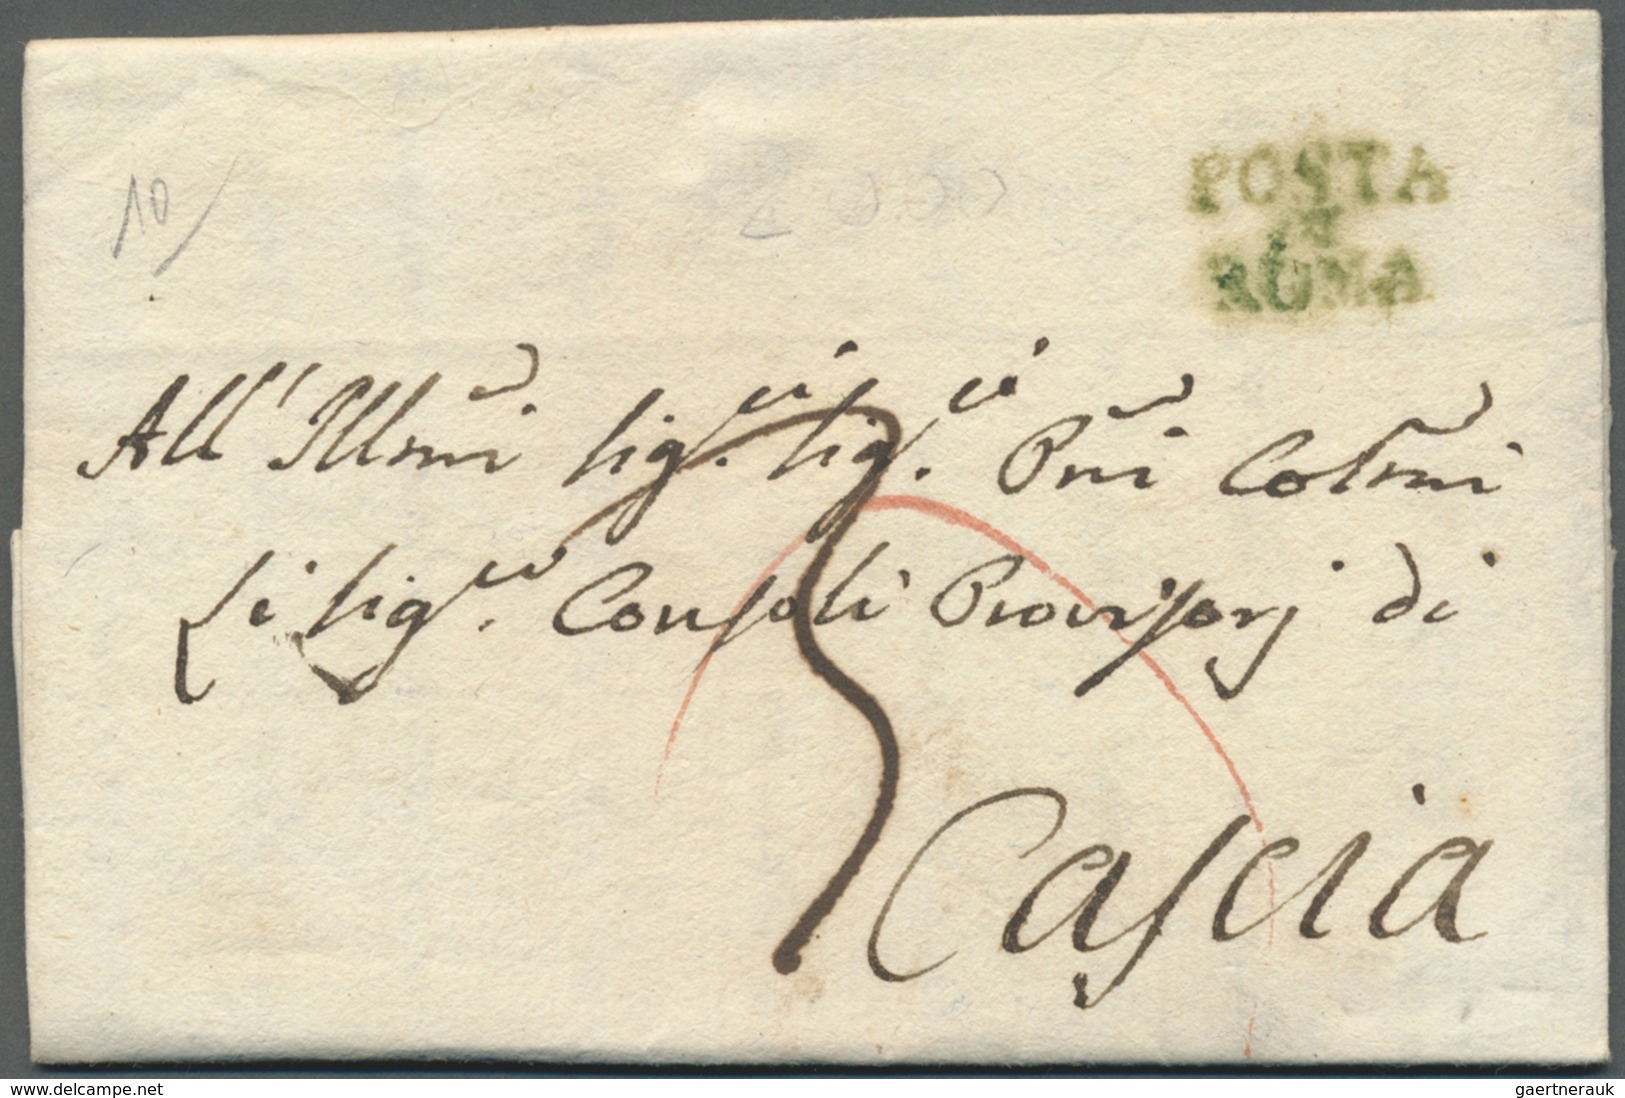 10
POSTA
DI
ROMA
All' Illmi Sigri Sigri Pni Colmi
Li Sigri Consoli Provisorj di
Cascia
www.delcampe.net
gaertnerauk